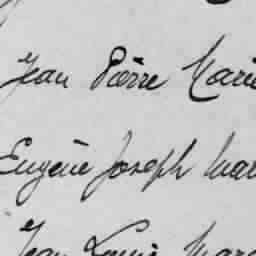 Jean Pierre Marie
Eugène Joseph Mar
Jean Louis Marc